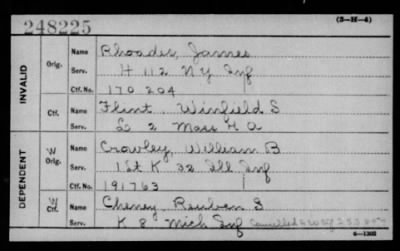 248225
(3-H-4)
INVALID
Orig. Name Rhoades, James
Serv. H 112 NY Inf
Ctf. No. 170 204
Ctf. Name Flint, Winfield S
Serv. L 2 Mass H A
DEPENDENT
W Orig. Name Crowley, William B
Serv. 1st K 32 Ill Inf
Ctf. No. 191763
W Ctf. Name Cheney, Reuben S
Serv. K 8 Mich Inf Cancelled
6-1303